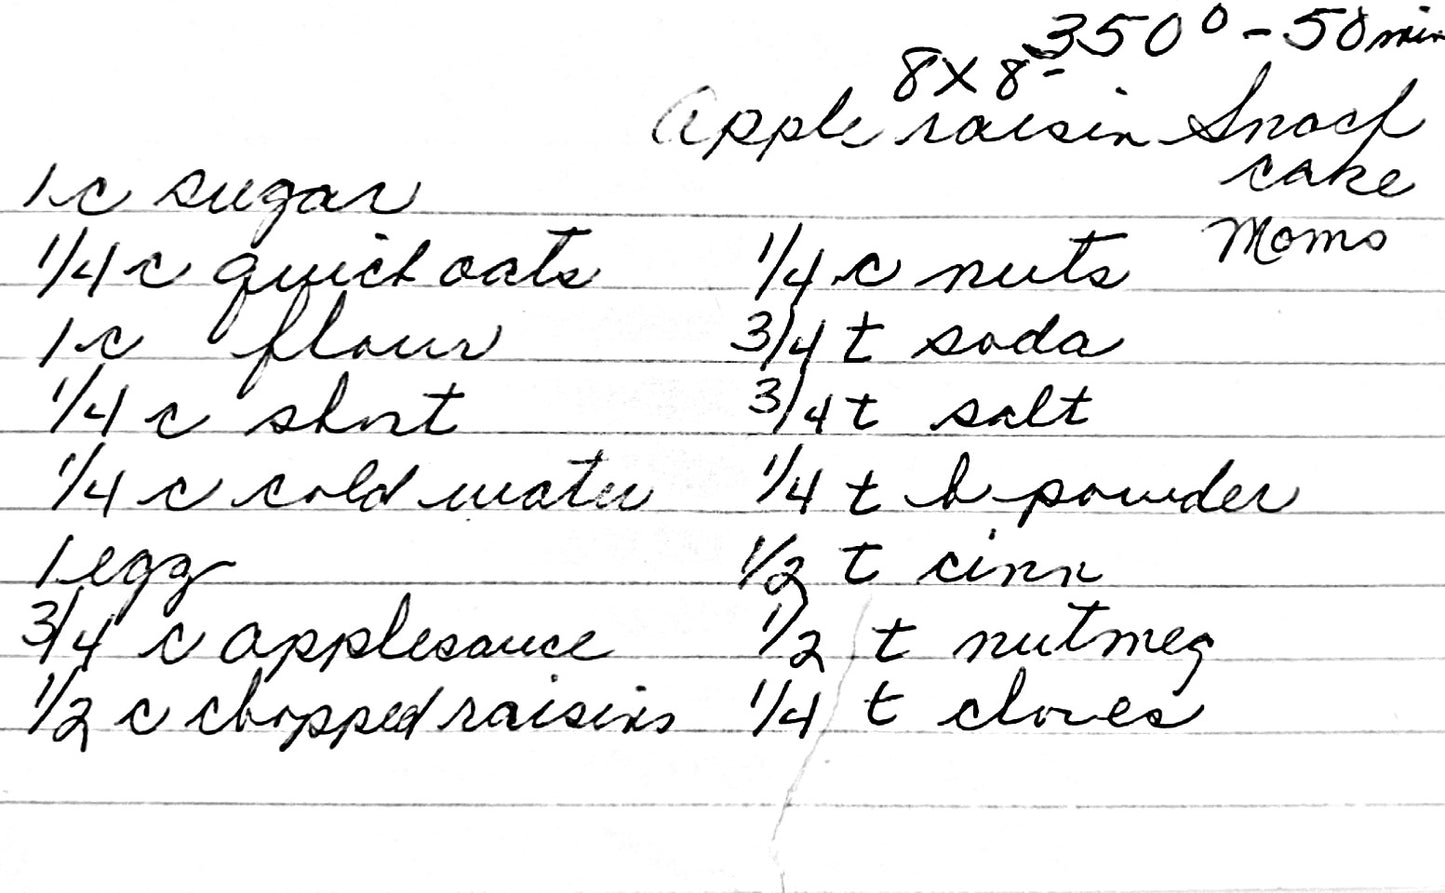 350° - 50 min
8 x 8 -
Apple raisin Snack
cake
Moms
1 c sugar
1/4 c quick oats
1 c flour
1/4 c short
1/4 c cold water
1 egg
3/4 c applesauce
1/2 c chopped raisins
1/4 c nuts
3/4 t soda
3/4 t salt
1/4 t b powder
1/2 t cinn
1/2 t nutmeg
1/4 t cloves